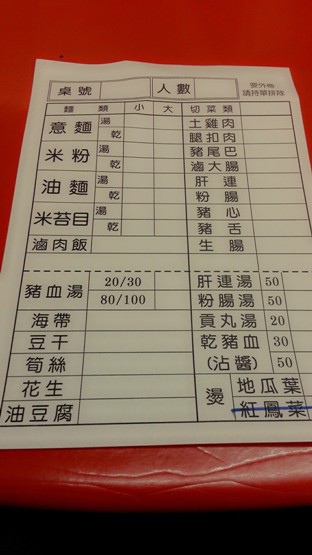 桌號 人數 要外帶
請持單排隊
麵類 小 大 切菜類
意麵 湯 乾 土雞肉
腿扣肉
米粉 湯 乾 豬尾巴
滷大腸
油麵 湯 乾 肝連
粉腸
米苔目 湯 乾 豬心
豬舌
滷肉飯 生腸
豬血湯 20/30 肝連湯 50
80/100 粉腸湯 50
海帶 貢丸湯 20
豆干 乾豬血 30
筍絲 (沾醬) 50
花生 燙 地瓜葉
油豆腐 紅鳳菜